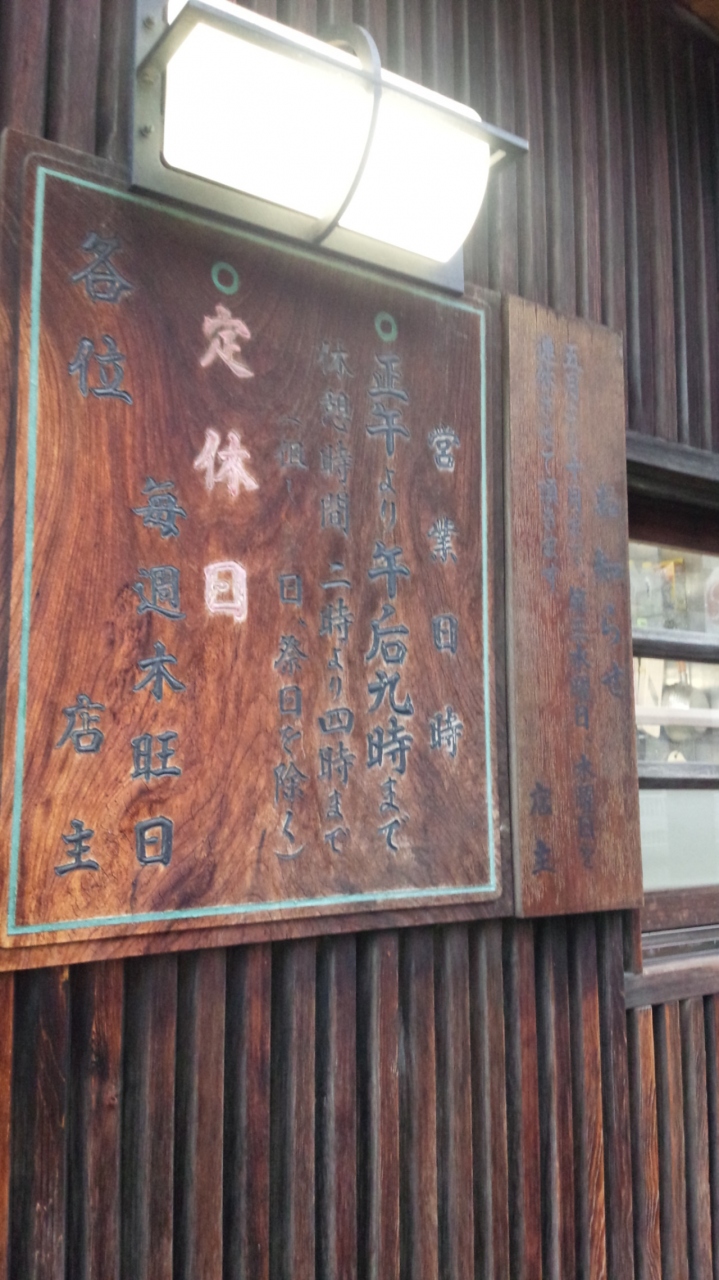 営業日時
正午より午后九時まで
休憩時間 二時より四時まで
(但し 日、祭日を除く)
定休日
毎週木旺日
各位
店主
お知らせ
店主